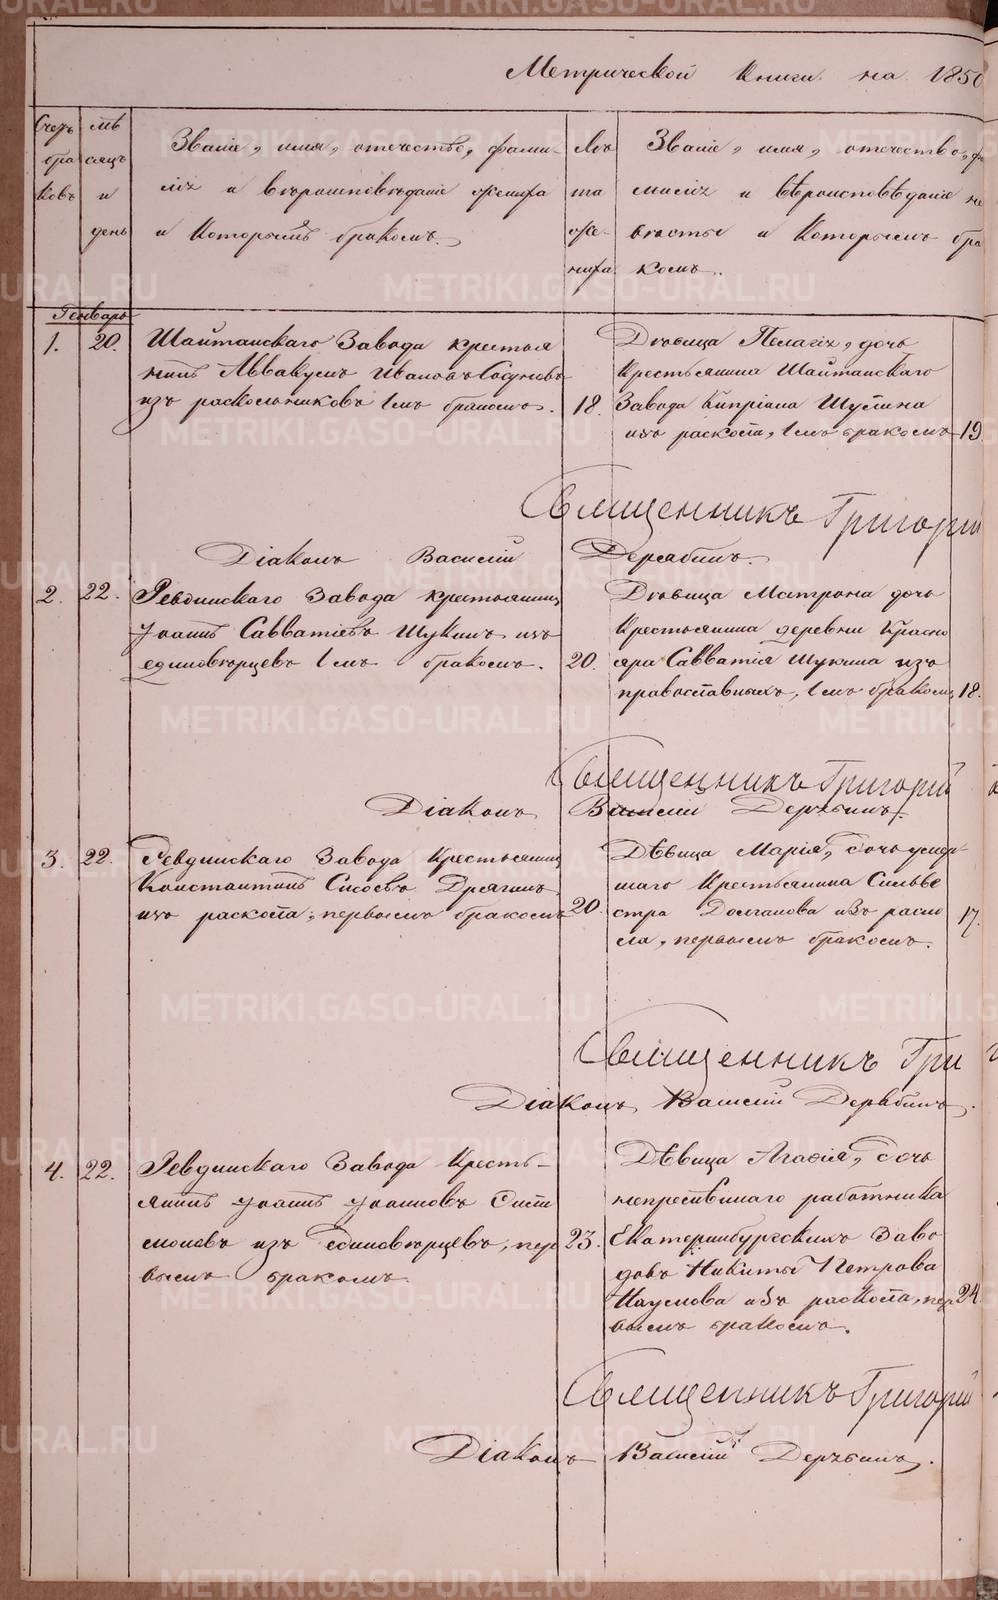 Метрической книги на 1850
Счетъ браковъ
Мѣсяцъ и день
Званіе, имя, отечество, фами-
лія и вѣроисповѣданіе жениха
и которымъ бракомъ.
Лѣта жениха
Званіе, имя, отечество, фа
милія и вѣроисповѣданіе не
вѣсты и которымъ бра
комъ.
Генварь
1. 20.
Шайтанскаго Завода крестья
нинъ Аввакумъ Ивановъ
изъ раскольниковъ 1мъ бракомъ.
18.
Дѣвица Пелагія, дочь
крестьянина Шайтанскаго
Завода Кипріана Шулина
изъ раскола, 1мъ бракомъ
19.
Священникъ Григорій
Діаконъ Василій Дерябинъ.
2. 22.
Ревдинскаго Завода крестьянинъ
Іоаннъ Савватіевъ Щукинъ изъ
единовѣрцевъ 1мъ бракомъ.
20.
Дѣвица Матрона дочь
крестьянина деревни Красно
яра Савватія Щукина изъ
православныхъ, 1мъ бракомъ
18.
Священникъ Григорій
Діаконъ Василій Дерябинъ.
3. 22.
Ревдинскаго Завода Крестьянинъ
Константинъ Сысоевъ Дрягинъ
изъ раскола, первымъ бракомъ
20
Дѣвица Марія, дочь умер-
шаго Крестьянина Сильве
стра Долганова изъ раско
ла, первымъ бракомъ.
17.
Священникъ Гри
Діаконъ Василій Дерябинъ.
4. 22.
Ревдинскаго Завода Кресть-
янинъ Іоаннъ Іоанновъ
изъ Единовѣрцевъ, пер
вымъ бракомъ
23.
Дѣвица Агафія, дочь
работника
Екатеринбургскихъ Заво
довъ Никиты Петрова
Наумова изъ раскола, пер
вымъ бракомъ.
24
Священникъ Григорій
Діаконъ Василій Дерябинъ.
METRIKI.GASO-URAL.RU